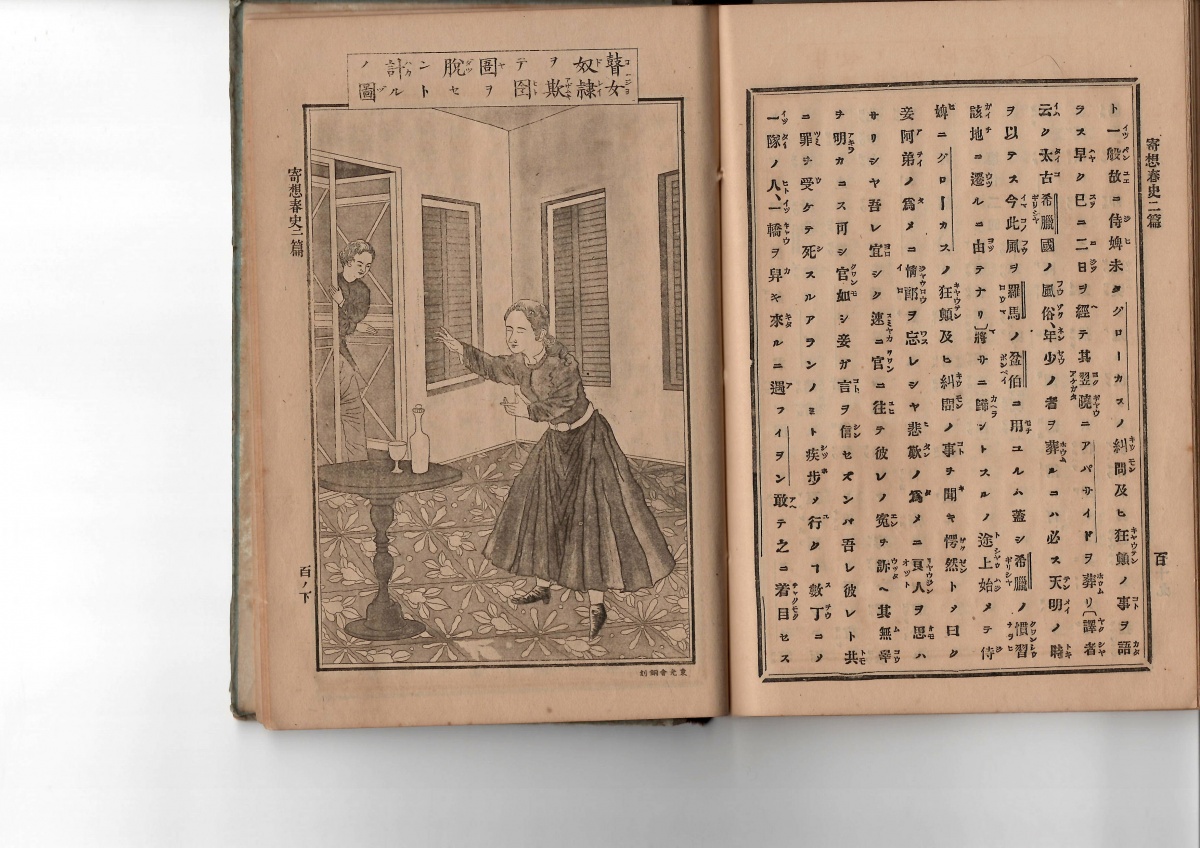 寄想春史二篇
百
ト一般故ニ侍婢未タグローカスノ糾問及ヒ狂顛ノ事ヲ語
ラス早ク已ニ二日ヲ經テ其翌曉ニアパサイドヲ葬リ〔譯者
云ク太古希臘國ノ風俗、年少ノ者ヲ葬ルニハ必ス天明ノ時
ヲ以テス今此風ヲ羅馬ノ盆伯ニ用ユルハ蓋シ希臘ノ慣習
該地ニ遷ルニ由テナリ〕將サニ歸ントスルノ途上始メテ侍
婢ニグローカスノ狂顛及ヒ糾問ノ事ヲ聞キ愕然トメ曰ク
妾阿弟ノ爲メニ情郎ヲ忘レシヤ悲歎ノ爲メニ良人ヲ思ハ
サリシヤ吾レ宜シク速ニ官ニ往テ彼レノ寃ヲ訴ヘ其無辜
ヲ明カニス可シ官如シ妾ガ言ヲ信セズンバ吾レ彼レト共
ニ罪ヲ受ケテ死スルアランノミト疾歩メ行クヿ數丁ニメ
一隊ノ人、一轎ヲ舁キ來ルニ遇フイヲン敢テ之ニ着目セス
瞽女奴隷ヲ欺テ囹圄ヲ脫セント計ルノ圖
寄想春史二篇
百ノ下
東光會銅刻